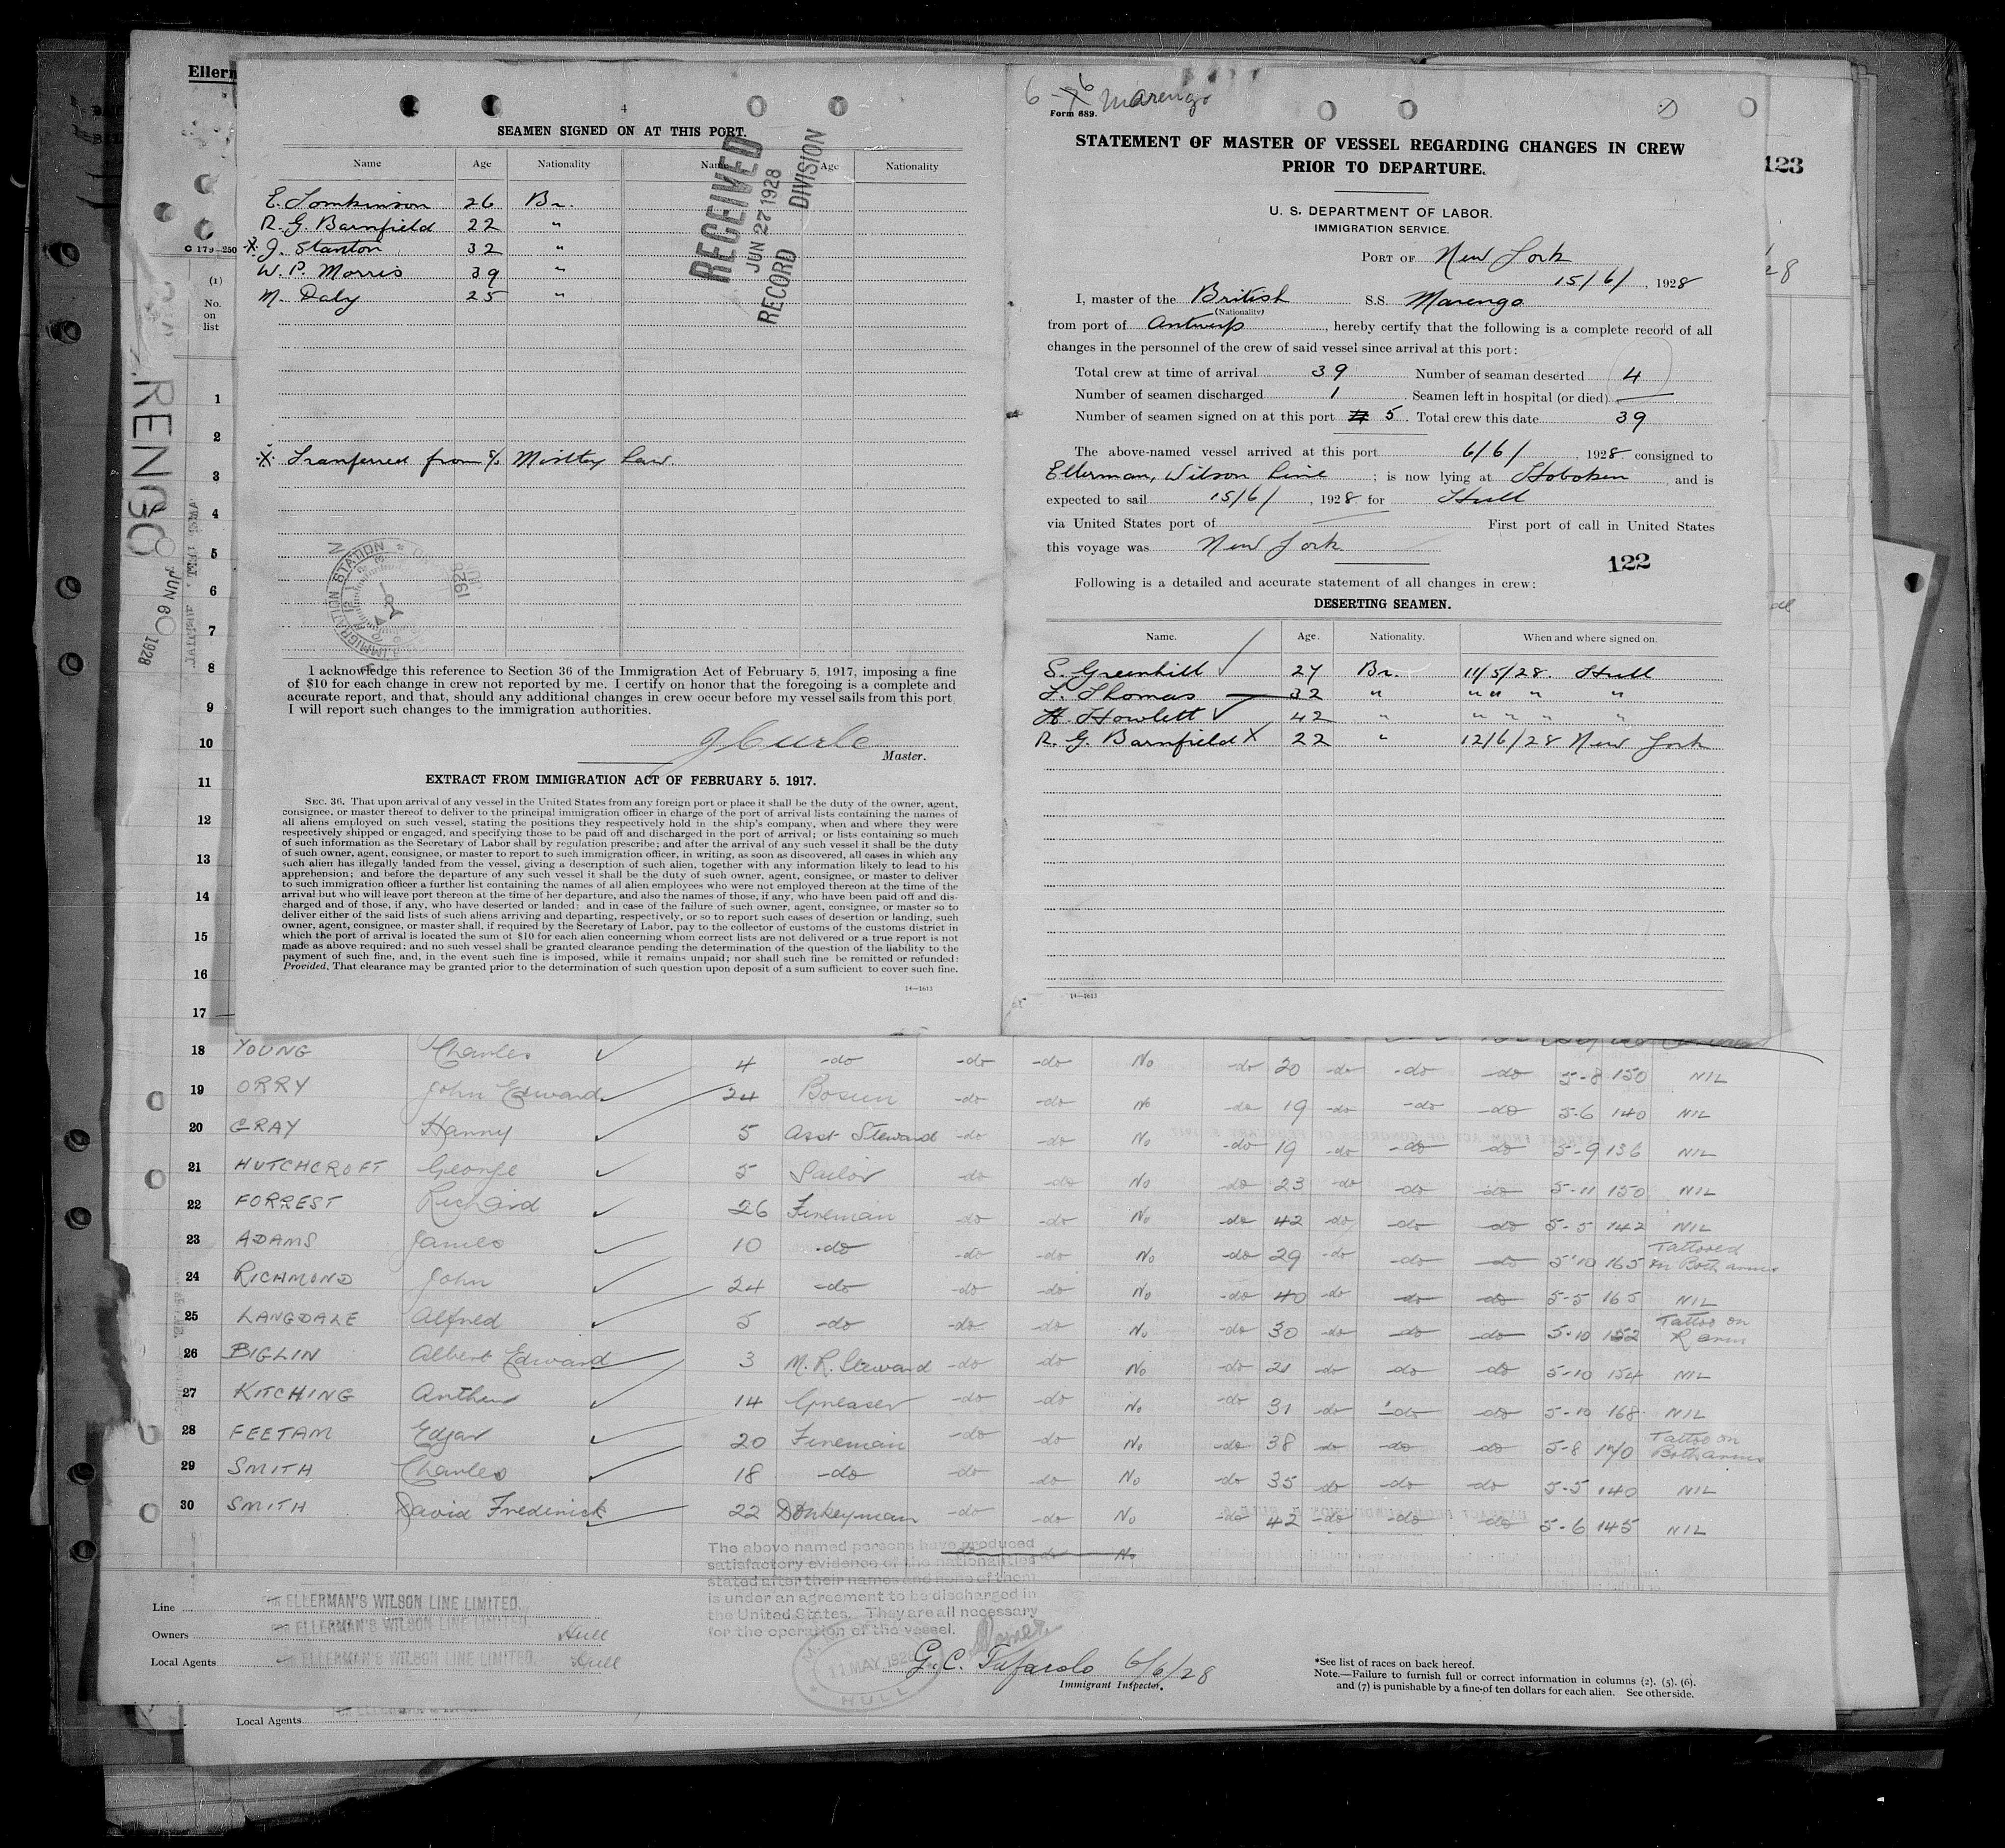 Ellerm
4
SEAMEN SIGNED ON AT THIS PORT.
Name Age Nationality Name Age Nationality
E. Tomkinson 26 Br.
R. G. Barnfield 22 "
X J. Stanton 32 "
W. P. Morris 39 "
M. Daly 25 "
RECEIVED
JUN 27 1928
RECORD DIVISION
X Tranferred from S/S
C 179—250
(1)
No.
on
list
RENGO
JUN 6 1928
1
2
3
4
5
6
7
8
9
10
11
12
13
14
15
16
17
IMMIGRATION STATION
1928
I acknowledge this reference to Section 36 of the Immigration Act of February 5, 1917, imposing a fine
of $10 for each change in crew not reported by me. I certify on honor that the foregoing is a complete and
accurate report, and that, should any additional changes in crew occur before my vessel sails from this port
I will report such changes to the immigration authorities.
J Curle
Master.
EXTRACT FROM IMMIGRATION ACT OF FEBRUARY 5, 1917.
SEC. 36. That upon arrival of any vessel in the United States from any foreign port or place it shall be the duty of the owner, agent,
consignee, or master thereof to deliver to the principal immigration officer in charge of the port of arrival lists containing the names of
all aliens employed on such vessel, stating the positions they respectively hold in the ship's company, when and where they were
respectively shipped or engaged, and specifying those to be paid off and discharged in the port of arrival; or lists containing so much
of such information as the Secretary of Labor shall by regulation prescribe; and after the arrival of any such vessel it shall be the duty
of such owner, agent, consignee, or master to report to such immigration officer, in writing, as soon as discovered, all cases in which any
such alien has illegally landed from the vessel, giving a description of such alien, together with any information likely to lead to his
apprehension; and before the departure of any such vessel it shall be the duty of such owner, agent, consignee, or master to deliver
to such immigration officer a further list containing the names of all alien employees who were not employed thereon at the time of the
arrival but who will leave port thereon at the time of her departure, and also the names of those, if any, who have been paid off and dis-
charged and of those, if any, who have deserted or landed; and in case of the failure of such owner, agent, consignee, or master so to
deliver either of the said lists of such aliens arriving and departing, respectively, or so to report such cases of desertion or landing, such
owner, agent, consignee, or master, shall, if required by the Secretary of Labor, pay to the collector of customs of the customs district in
which the port of arrival is located the sum of $10 for each alien concerning whom correct lists are not delivered or a true report is not
made as above required; and no such vessel shall be granted clearance pending the determination of the question of the liability to the
payment of such fine, and, in the event such fine is imposed, while it remains unpaid; nor shall such fine be remitted or refunded:
Provided, That clearance may be granted prior to the determination of such question upon deposit of a sum sufficient to cover such fine.
14—1613
6 - 6 Marengo
Form 689.
STATEMENT OF MASTER OF VESSEL REGARDING CHANGES IN CREW
PRIOR TO DEPARTURE.
U. S. DEPARTMENT OF LABOR.
IMMIGRATION SERVICE.
PORT OF New York
15/6/, 1928
I, master of the British S.S. Marengo
(Nationality)
from port of Antwerp, hereby certify that the following is a complete record of all
changes in the personnel of the crew of said vessel since arrival at this port:
Total crew at time of arrival 39 Number of seaman deserted 4
Number of seamen discharged 1 Seamen left in hospital (or died) —
Number of seamen signed on at this port 5. Total crew this date 39
The above-named vessel arrived at this port 6/6/, 1928 consigned to
Ellerman, Wilson Line; is now lying at Hoboken, and is
expected to sail 15/6/, 1928 for Hull
via United States port of — First port of call in United States
this voyage was New York
122
Following is a detailed and accurate statement of all changes in crew:
DESERTING SEAMEN.
Name. Age. Nationality. When and where signed on.
S. Greenhill ✓ 27 Br. 11/5/28. Hull
Thomas 32 " " " " "
H. Howlett ✓ 42 " " " " "
R. G. Barnfield X 22 " 12/6/28 New York
14—1613
123
28
18 YOUNG Charles ✓ 4 -do -do -do No -do 20 -do -do -do 5-8 150 NIL
19 ORRY John Edward ✓ 24 Bosun -do -do No -do 19 -do -do -do 5-6 140 NIL
20 GRAY Harry ✓ 5 Asst Steward -do -do No -do 19 -do -do -do 5-9 156 NIL
21 HUTCHCROFT George ✓ 5 Sailor -do -do No -do 23 -do -do -do 5-11 150 NIL
22 FORREST Richard ✓ 26 Fireman -do -do No -do 42 -do -do -do 5-5 142 NIL
23 ADAMS James ✓ 10 -do -do -do No -do 29 -do -do -do 5-10 165 Tattooed on Both arms
24 RICHMOND John ✓ 24 -do -do -do No -do 40 -do -do -do 5-5 165 NIL
25 LANGDALE Alfred ✓ 5 -do -do -do No -do 30 -do -do -do 5-10 152 Tattoo on R arm
26 BIGLIN Albert Edward ✓ 3 M.R. Steward -do -do No -do 21 -do -do -do 5-10 154 NIL
27 KITCHING Arthur ✓ 14 Greaser -do -do No -do 31 -do -do -do 5-10 168 NIL
28 FEETAM Edgar ✓ 20 Fireman -do -do No -do 38 -do -do -do 5-8 170 Tattoo on Both arms
29 SMITH Charles ✓ 18 -do -do -do No -do 35 -do -do -do 5-5 140 NIL
30 SMITH David Frederick ✓ 22 Donkeyman -do -do No -do 42 -do -do -do 5-6 145 NIL
The above named persons have produced
satisfactory evidence of the nationalities
stated after their names and none of them
is under an agreement to be discharged in
the United States. They are all necessary
for the operation of the vessel.
Line FOR ELLERMAN'S WILSON LINE LIMITED.
Owners FOR ELLERMAN'S WILSON LINE LIMITED. Hull
Local Agents ELLERMAN'S WILSON LINE LIMITED. Hull
11 MAY 1928
HULL
G. C. Tufarolo 6/6/28
Immigrant Inspector.
*See list of races on back hereof.
Note.—Failure to furnish full or correct information in columns (2), (5), (6),
and (7) is punishable by a fine of ten dollars for each alien. See other side.
Local Agents